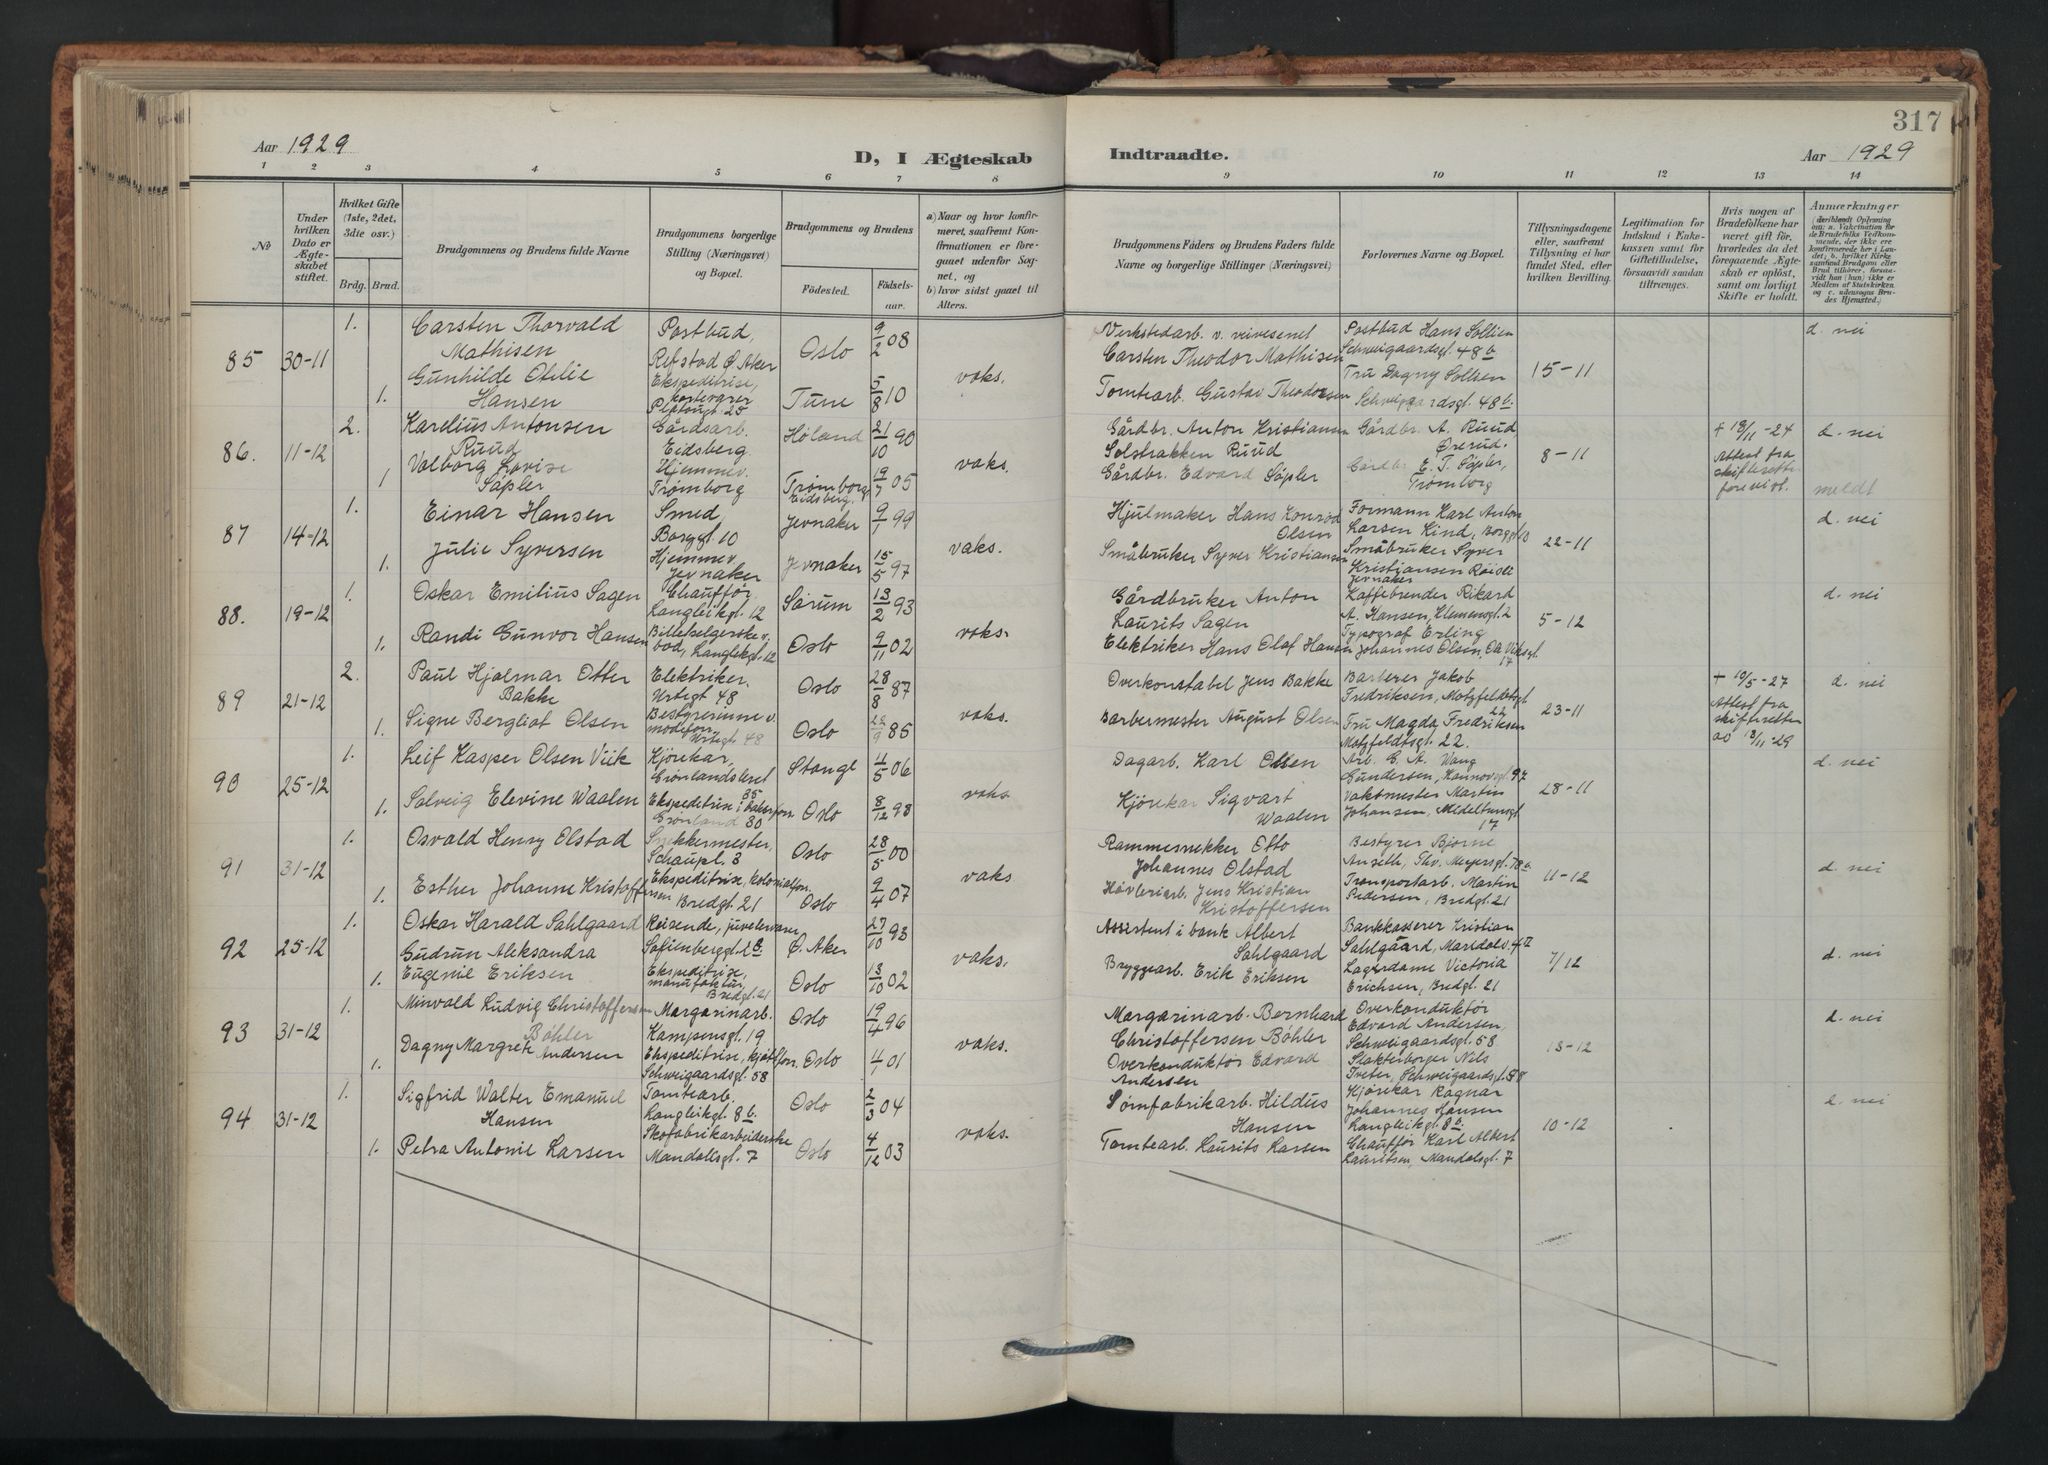 317
Aar 1929
D, I Ægteskab
Indtraadte.
Aar 1929
1 2 3 4 5 6 7 8 9 10 11 12 13 14
No
Under hvilken Dato er Ægteskabet stiftet.
Hvilket Gifte (1ste, 2det, 3die osv.)
Brdg. Brud.
Brudgommens og Brudens fulde Navne
Brudgommens borgerlige Stilling (Næringsvei) og Bopæl.
Brudgommens og Brudens
Fødested. Fødselsaar.
a) Naar og hvor konfirmeret, saafremt Konfirmationen er foregaaet udenfor Sognet, og
b) hvor sidst gaaet til Alters.
Brudgommens Faders og Brudens Faders fulde Navne og borgerlige Stillinger (Næringsvei)
Forlovernes Navne og Bopæl.
Tillysningsdagene eller, saafremt Tillysning ei har fundet Sted, efter hvilken Bevilling.
Legitimation for Indskud i Enkekassen samt for Giftetilladelse, forsaavidt saadan tiltrænges.
Hvis nogen af Brudefolkene har været gift før, hvorledes da det foregaaende Ægteskab er opløst, samt om lovligt Skifte er holdt.
Anmærkninger
(deriblandt Oplysning om: a. Vakcination for de Brudefolks Vedkommende, der ikke ere konfirmerede her i Landet; b. hvilket Kirkesamfund Brudgom eller Brud tilhører, forsaavidt han (hun) ikke er Medlem af Statskirken og c. udensogns Brudes Hjemsted.)
85 30-11 1. Carsten Thorvald Mathisen Postbud, Refstad Ø. Aker Oslo 9/2 08 vaks. Verkstedarb. v. veivesenet Carsten Theodor Mathisen Postbud Hans Sollien Schweigaardsgt. 48b 15-11 d. nei
1. Gunhilde Otilie Hansen Ekspeditrise, Tune 5/8 10 Tomtearb. Gustav Theodorsen Fru Dagny Sollien Schweigaardsgt. 48b.
86. 11-12 2. Karelius Antonsen Ruud Gårdsarb. Eidsberg Høland 21/10 90 vaks. Gårdbr. Anton Kristiansen Solstrakken Ruud Gårdbr. A. Ruud, Ørerud. 8-11 + 18/11-24 Attest fra skifteretten forevist. d. nei
1 Valborg Lovise Sæpler Hjemmev. Trømborg Trømborg Eidsberg. 19/7 05 Gårdbr. Edvard Sæpler Gårdbr. E. T. Sæpler, Trømborg meldt
87 14-12 1. Einar Hansen Smed, Borggt 10 Jevnaker 9/1 99 vaks. Hjulmaker Hans Konrad Olsen Formann Karl Anton Larsen Kind, Borggt 10 22-11 d. nei
1. Julie Syversen Hjemmev. Jevnaker Jevnaker 15/5 97 Småbruker Syver Kristiansen Småbruker Syver Kristiansen Jevnaker
88. 19-12 1. Oskar Emilius Sagen Chauffør. Langleikgt. 12 Sørum 13/2 93 vaks. Gårdbruker Anton Laurits Sagen Kaffebrenner Rikard A. Hansen, Klemensgt. 2 5-12 d. nei
1. Randi Gunvor Hansen Billetselgerske v. bod, Langleikgt. 12 Oslo 9/11 02 Elektriker Hans Olaf Hansen Typograf Erling Johannes Olsen, 17
89 21-12 2. Paul Hjalmar Otter Bakke Elektriker. Urtegt 48 Oslo 28/8 87 vaks. Overkonstabel Jens Bakke Barberer Jakob Fredriksen, Motzfeldtsgt 22 23-11 + 10/5-27 Attest fra skifteretten 13/11-29 d. nei
1. Signe Bergliot Olsen Bestyrerinne v. Urtegt. 48 Oslo 85 Barbermester August Olsen Fru Magda Fredriksen Motzfeldtsgt. 22.
90 25-12 1. Leif Kasper Olsen Viik Kjørekar, Grønlandsleret 35 Stange 4/5 06 vaks. Dagarb. Karl Olsen Arb. C. A. Vang Gundersen, 28-11 d. nei
1. Solveig Elevine Waalen Ekspeditrise i Grønland 30 Oslo 8/12 98 Kjørekar Sigvart Waalen Vaktmester Martin Johansen, 17
91 31-12 1. Osvald Henry Olstad Snekkermester, Schaupl. 3 Oslo 28/5 00 vaks Rammesnekker Otto Johannes Olstad Bestyrer Bjarne Thv. Meyersgt. 78b 11-12 d. nei
1. Esther Johanne Kristoffersen Ekspeditrise, kolonialforr. Bredgt. 21 Oslo 2/4 07 Høvleriarb. Jens Kristian Kristoffersen Transportarb. Martin Pedersen, Bredgt. 21
92 25-12 1. Oskar Harald Sahlgaard Reisende, juvelervarer Sofienberggt. Ø. Aker 27/10 93 vaks. Assistent i bank Albert Sahlgaard Bankkasserer Kristian Sahlgaard, 7/12 d. nei
1. Gudrun Aleksandra Eugenie Eriksen Ekspeditrise, manufaktur, Bredgt. 21 Oslo 13/10 02 Bryggearb. Erik Eriksen Lagerdame Victoria Erichsen, Bredgt. 21
93 31-12 1. Minvald Ludvig Christoffersen Bøhler Margarinarb. Kampensgt. 19 Oslo 19/4 96 vaks. Margarinarb. Bernhard Christoffersen Bøhler Overkonduktør Edvard Andersen, Schweigaardsgt. 58 13-12 d. nei
1. Dagny Margrete Andersen Ekspeditrise, kjøttforr. Schweigaardsgt. 58 Oslo 4/1 01 Overkonduktør Edvard Andersen Slakterborger Nils Tveter, Schweigaardsgt. 58
94 31-12 1. Sigfrid Walter Emanuel Hansen Tomtearb. Langleikgt. 8b. Oslo 2/3 04 vaks. Sømfabrikarb. Hildus Hansen Kjørekar Ragnar Johannes Hansen Langleikgt. 8b. 10-12 d. nei
1. Petra Antonie Larsen Skofabrikarbeiderske Mandalsgt. 7 Oslo 4/12 03 Tomtearb. Laurits Larsen Chauffør Karl Albert Lauritsen, Mandalsgt. 7